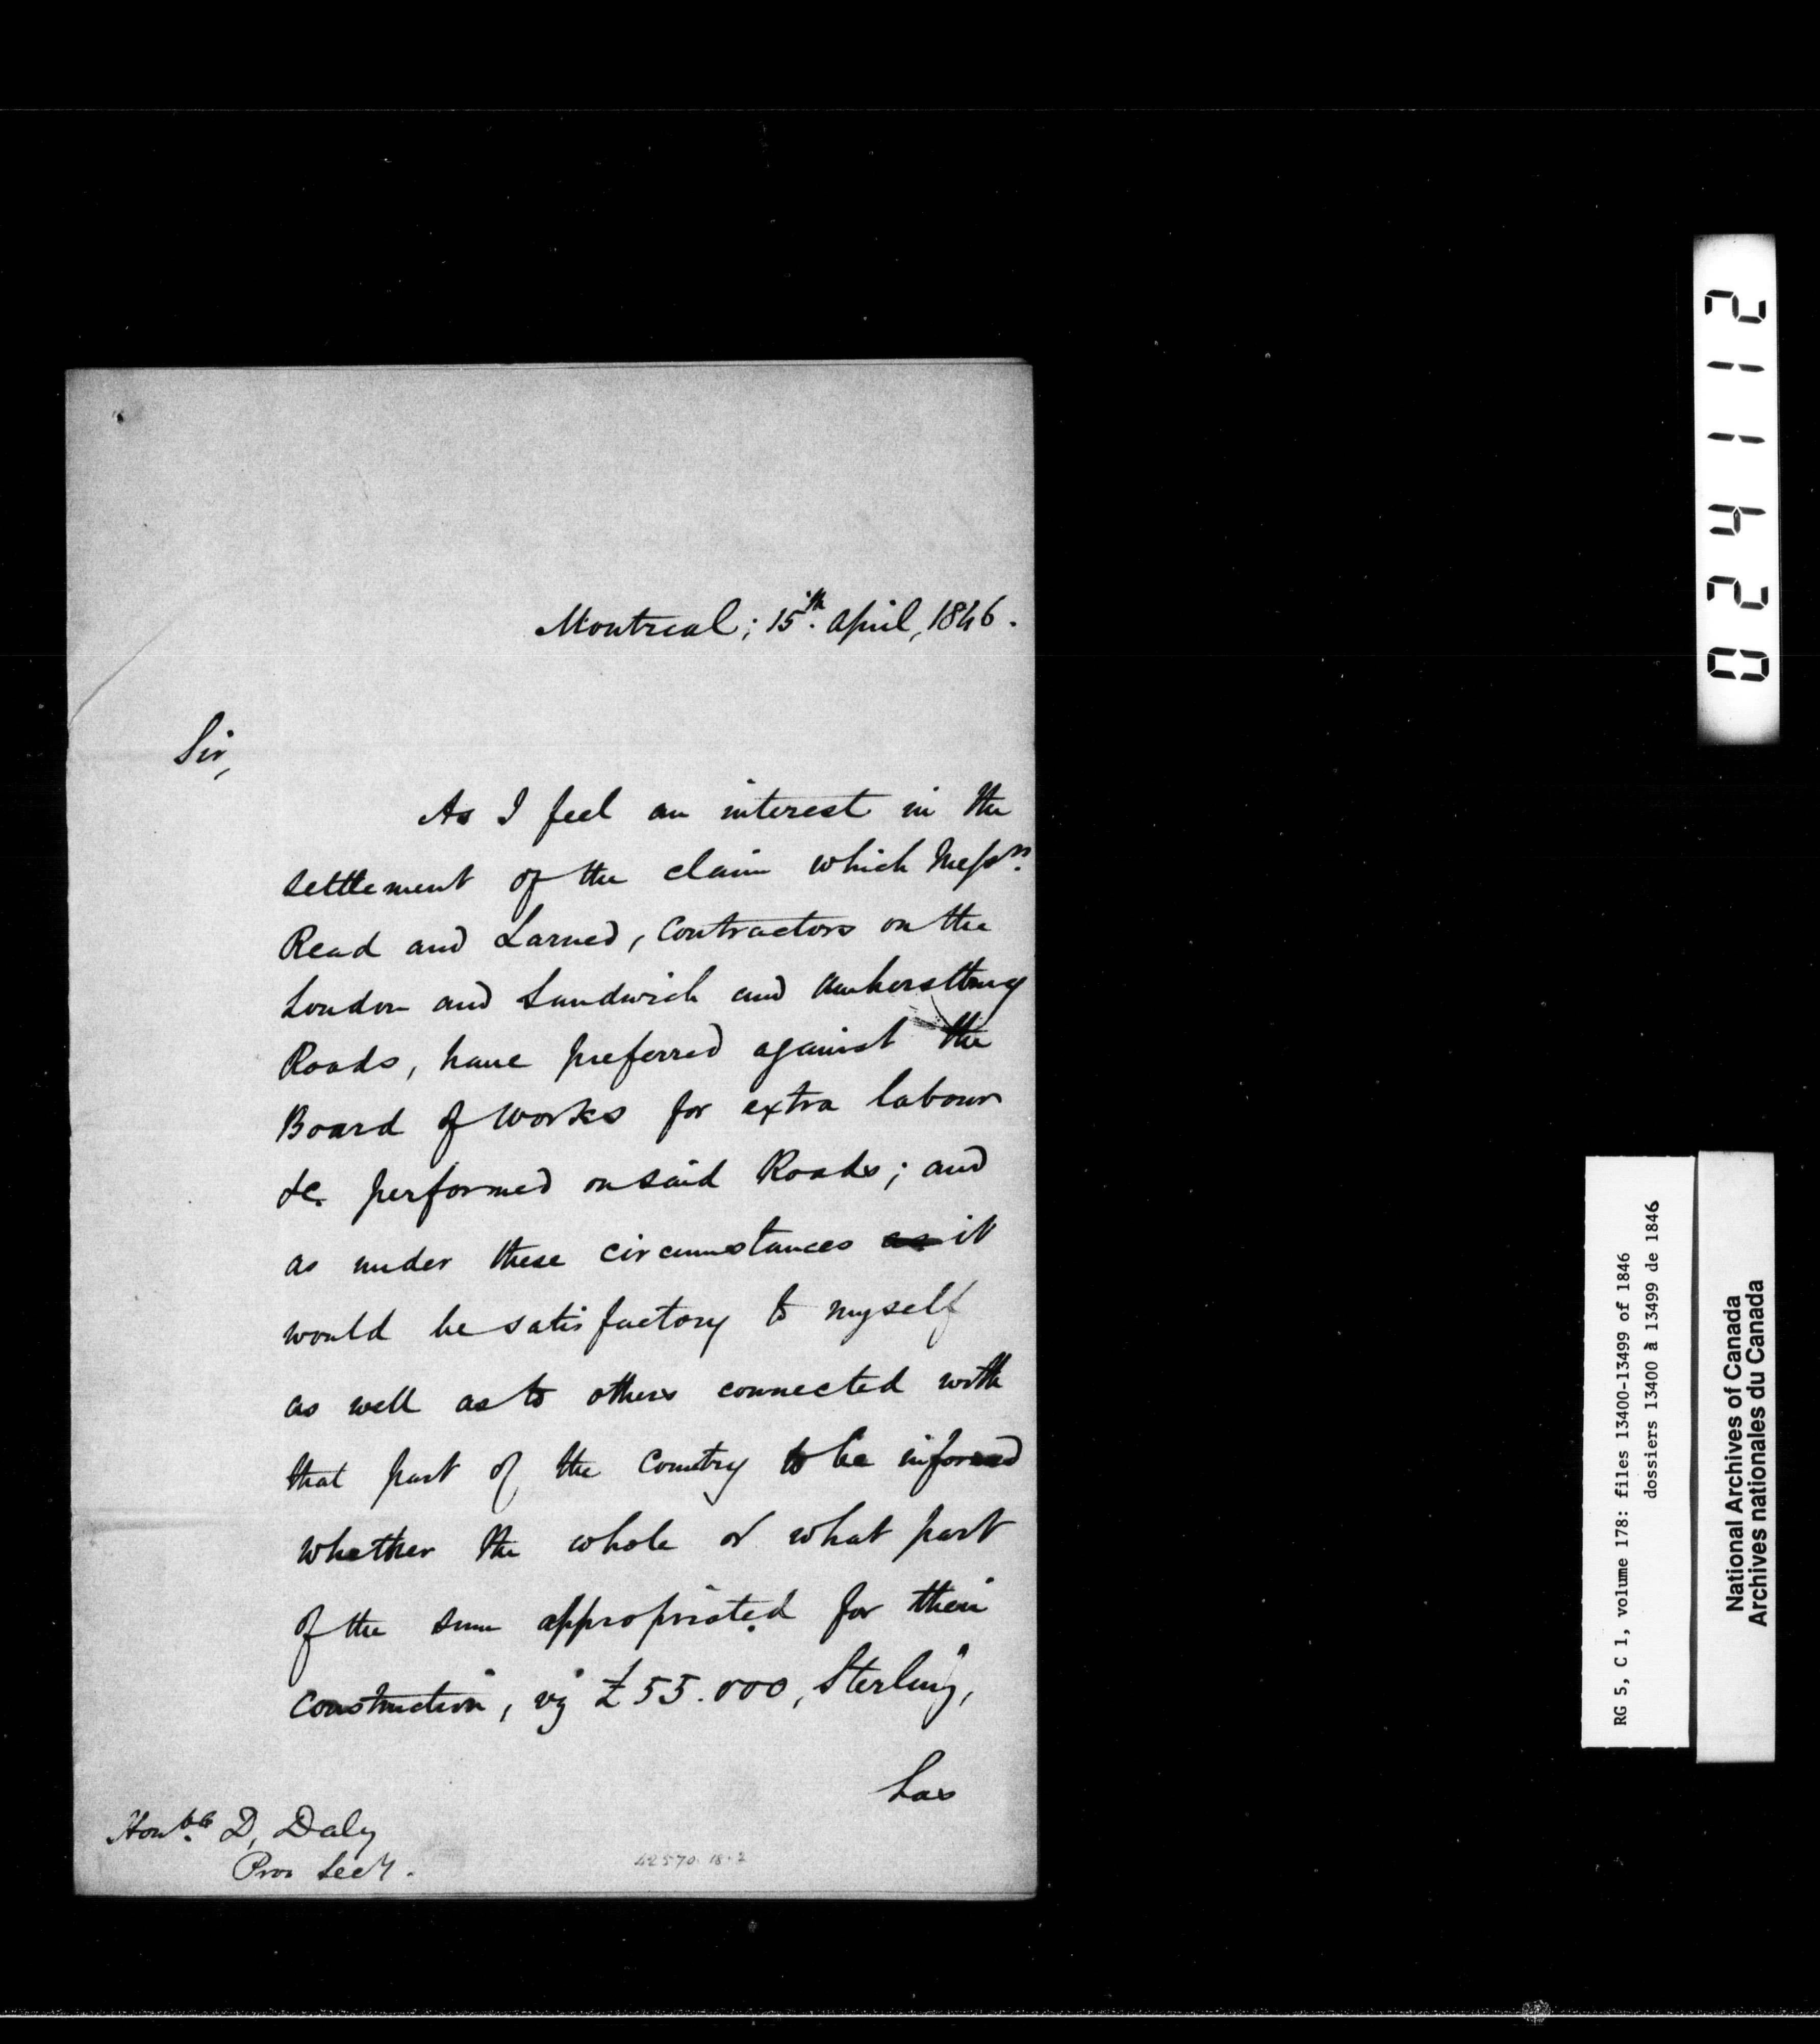 Montreal; 15th. April, 1846.
Sir,
As I feel an interest in the
settlement of the claim which Messrs.
Read and Larned, Contractors on the
London and Sandwich and Amherstburg
Roads, have preferred against the
Board of Works for extra labour
&c. performed on said Roads; and
as under these circumstances as it
would be satisfactory to myself
as well as to others connected with
that part of the Country to be informed
whether the whole or what part
of the sum appropriated for their
Construction, viz £55.000, Sterling,
has
Honble. D, Daly
Prov Secy.
42570 18-2
024112
RG 5, C 1, volume 178: files 13400-13499 of 1846
dossiers 13400 à 13499 de 1846
National Archives of Canada
Archives nationales du Canada